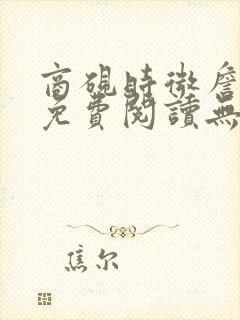 商硯時微詹
免費閱讀無
焦尔